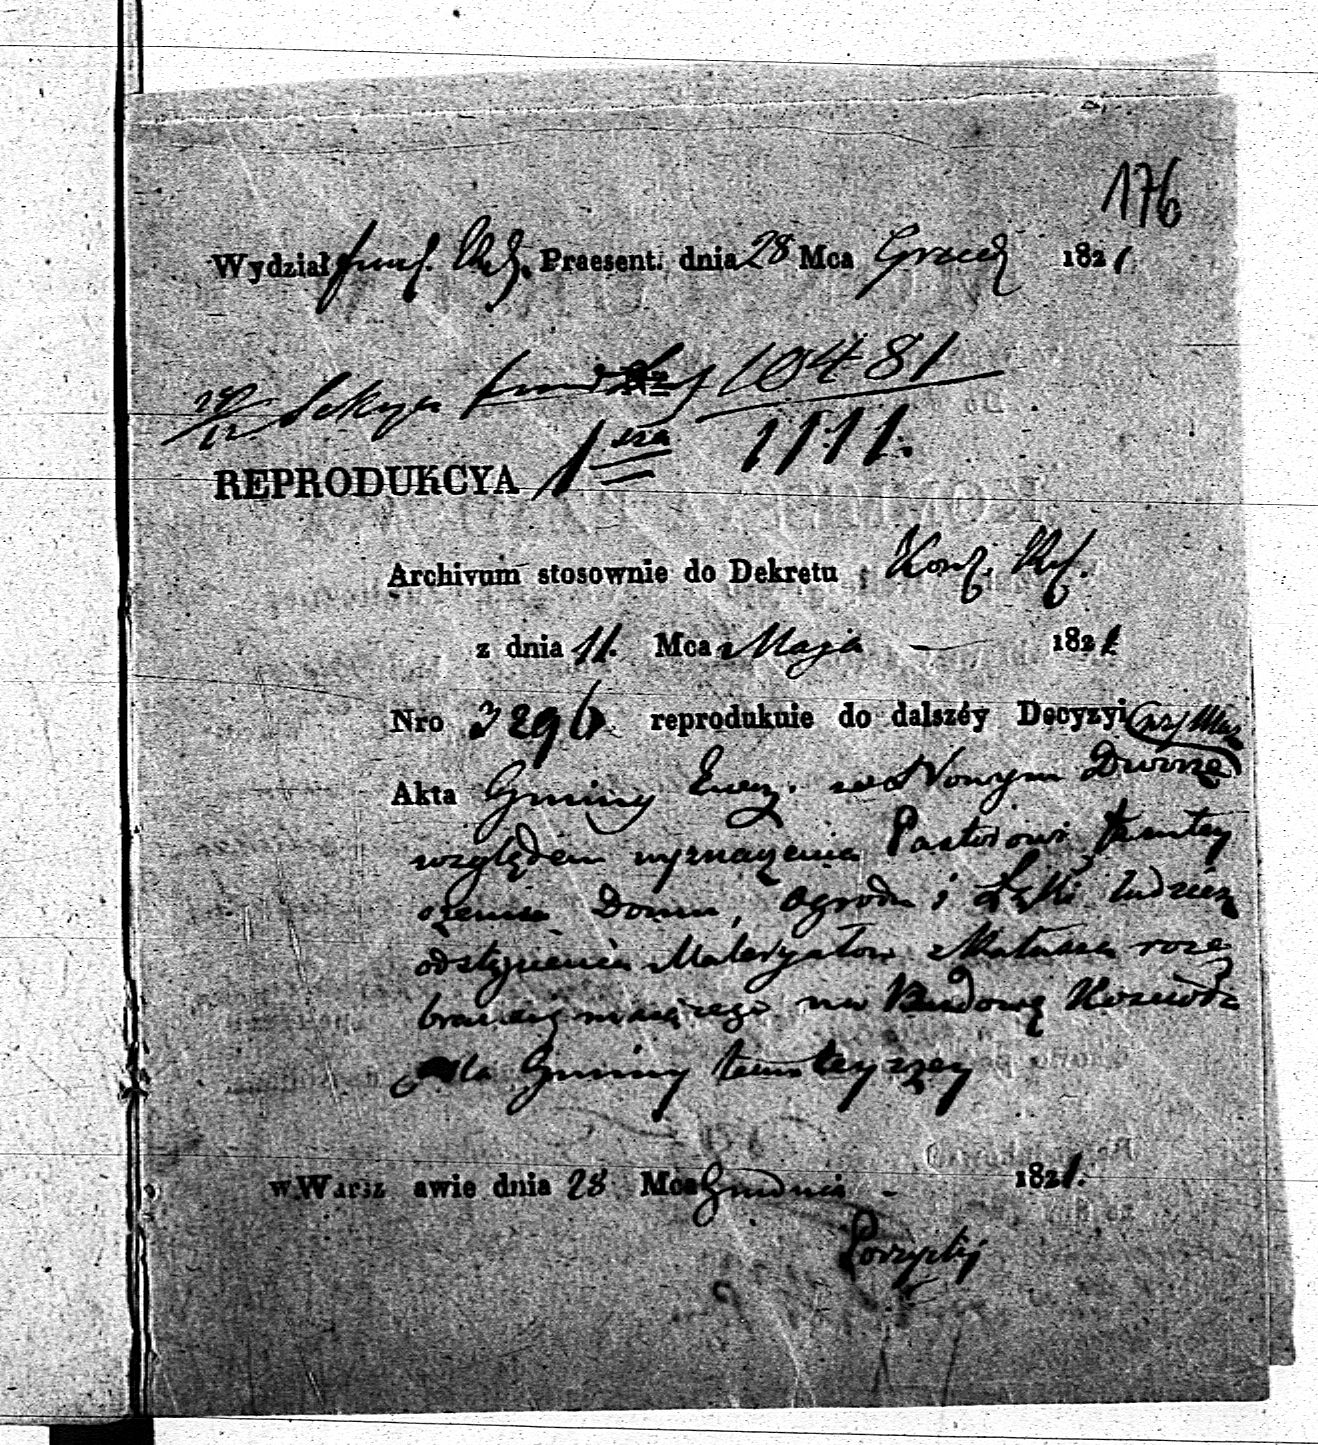 176
Wydział Praesent. dnia 28 Mca Grud 1821
28/12 Sekcya 10481
REPRODUKCYA 1sza 1111.
Archivum stosownie do Dekretu
z dnia 11. Mca Maja — 1821
Nro 3296 reprodukuie do dalszéy Decyzyi
Akta Gminy Ewaz. w Nowym Dworze
względem wyznaczenia Pastorowi tamtey
Domu, Ogrodu i Łąki tudzież
odstąpienia Materyałow z Ratusza roze
brać się maiącego na Budowę Kościoła
dla Gminy tamteyszey
w Warsz awie dnia 28 Mca Grudnia - 1821.